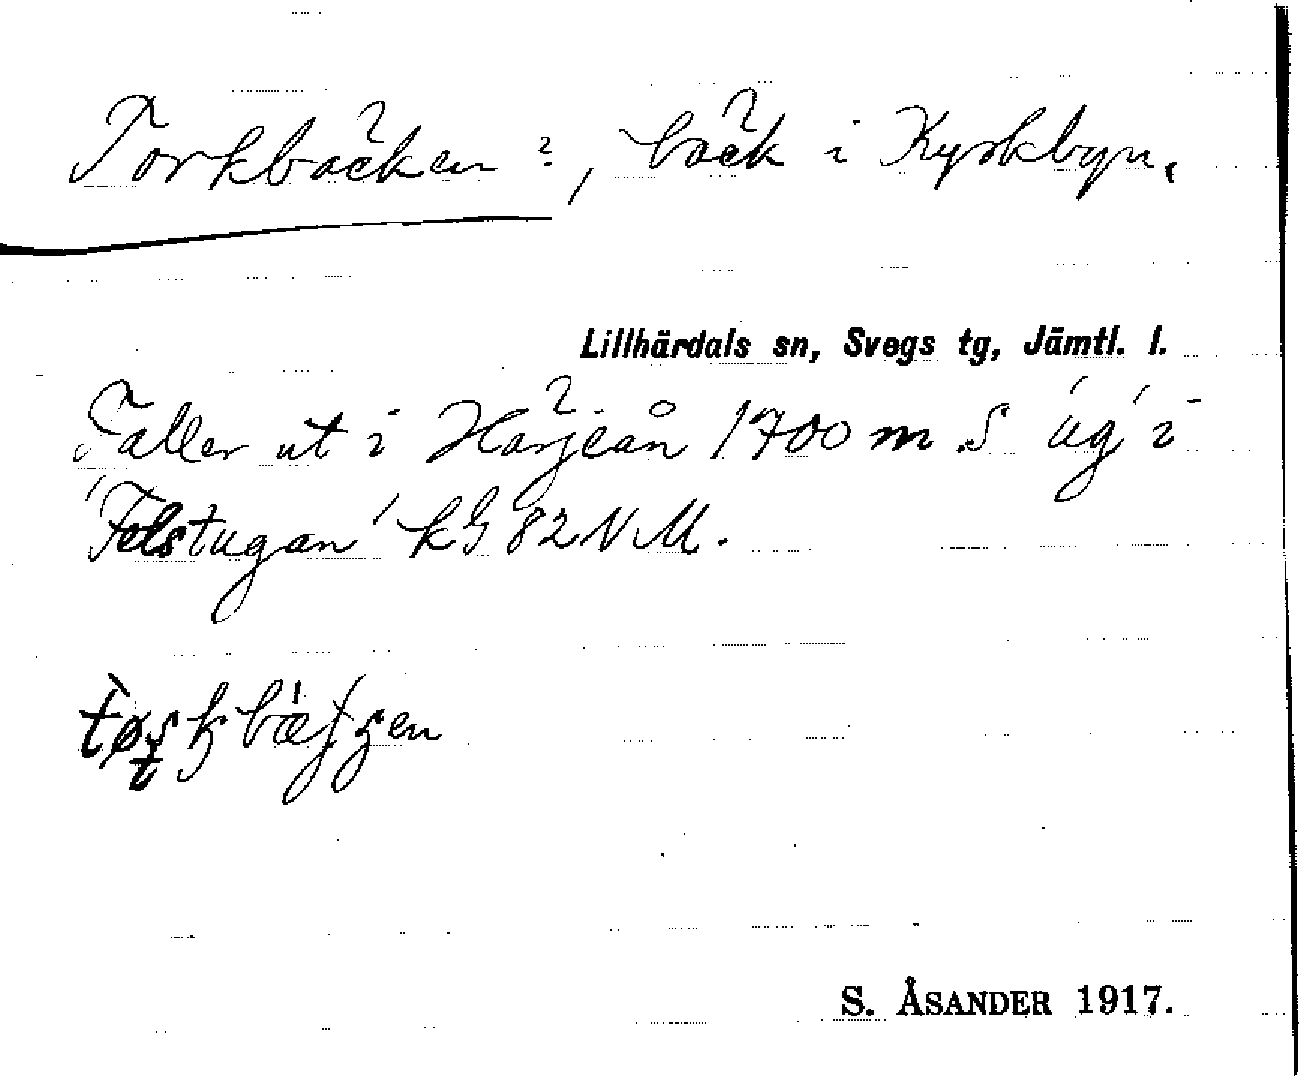 Torkbäcken?, bäck i Kyrkbyn.
Lillhärdals sn, Svegs tg, Jämtl. l.
Faller ut i Härjeån 1700 m S 'ug' i
'Felstugan' kG 82 NM.
S. ÅSANDER 1917.